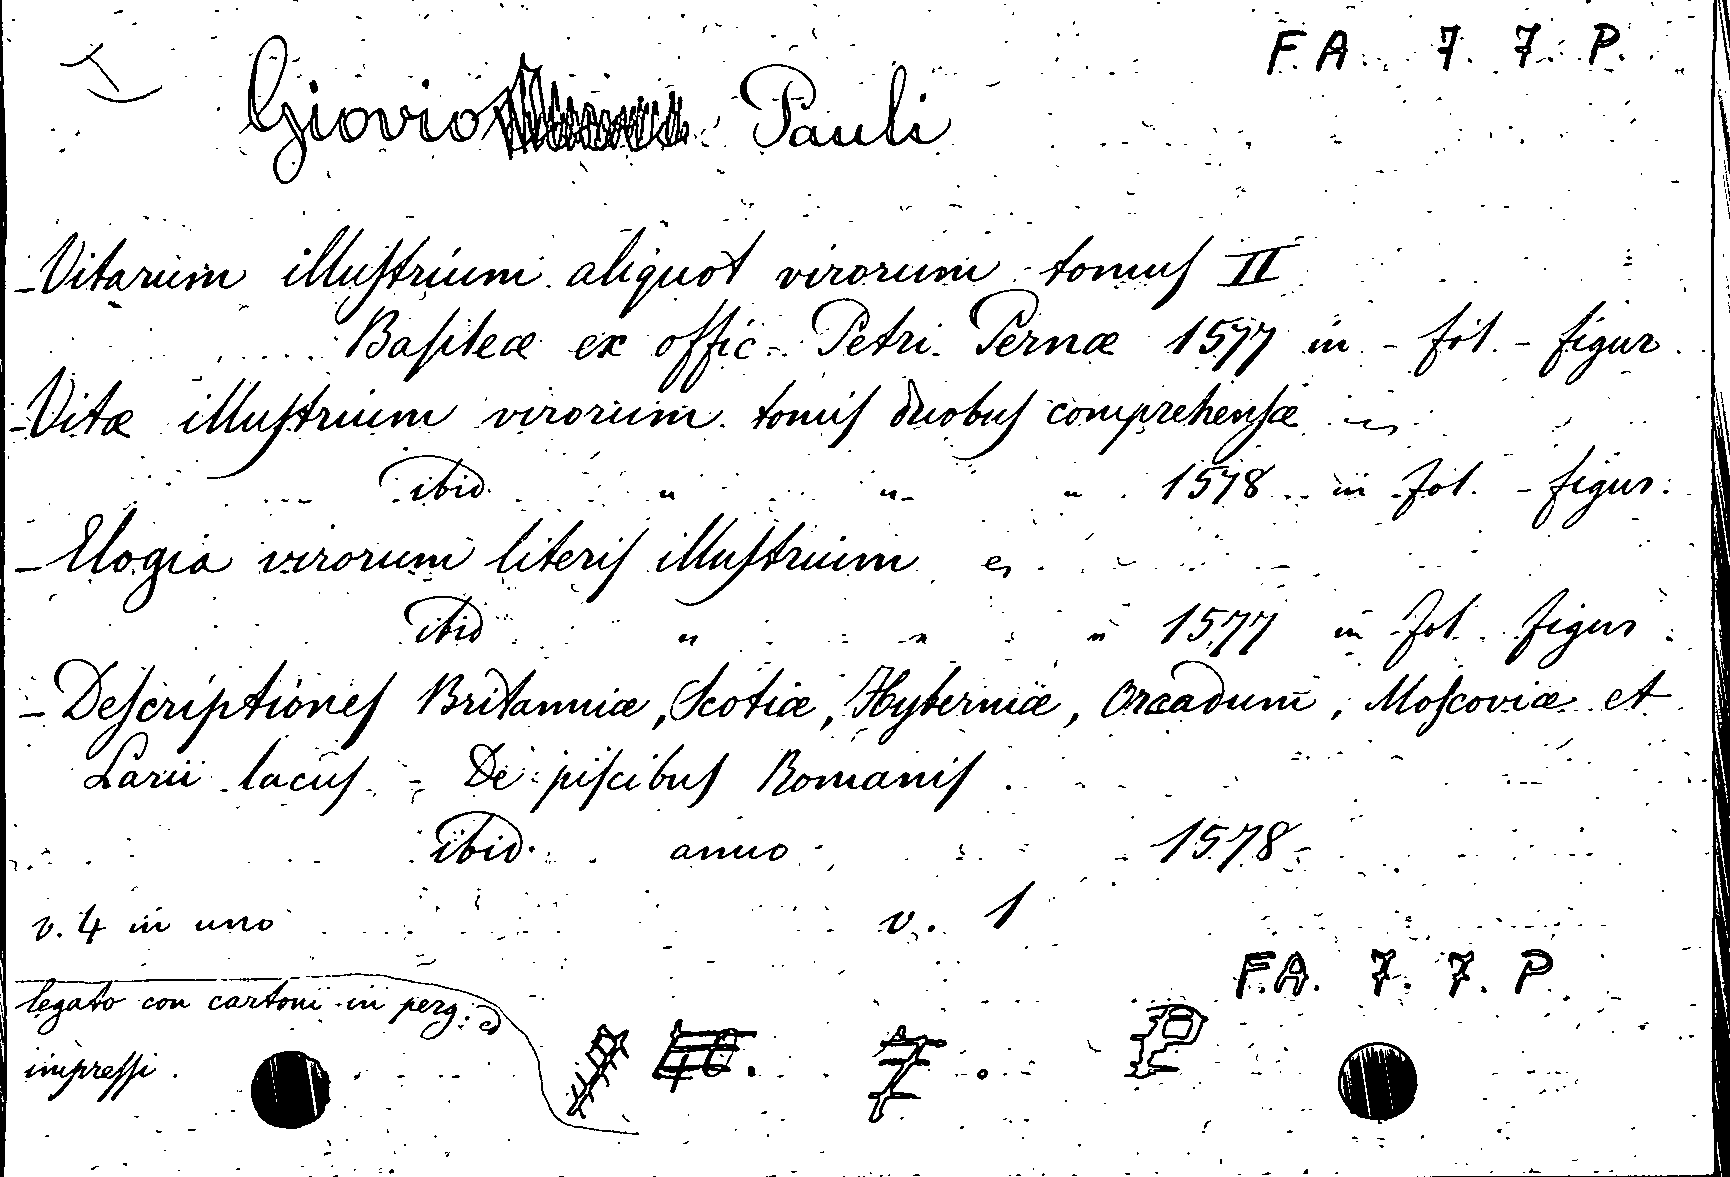 F. A. 7. 7. P.
Giovio Pauli
- Vitarum illuſtrium aliquot virorum tomuſ II
Baſileæ ex offic. Petri Pernæ 1577 in - fol. - figur.
- Vitæ illuſtrium virorum tomiſ duobuſ comprehenſæ
ibid. " " " 1578 in fol. - figur.
- Elogia virorum literiſ illuſtrium
ibid " " " 1577 in fol. figur.
- Deſcriptioneſ Britanniæ, Scotiæ, Hyberniæ, Orcadum, Moſcoviæ et
Larii lacuſ - De piſcibuſ Romaniſ.
ibid. anno 1578
v. 4 in uno v. 1
F.A. 7. 7. P
legato con cartoni in perg: ed
impreſſi.
7. P